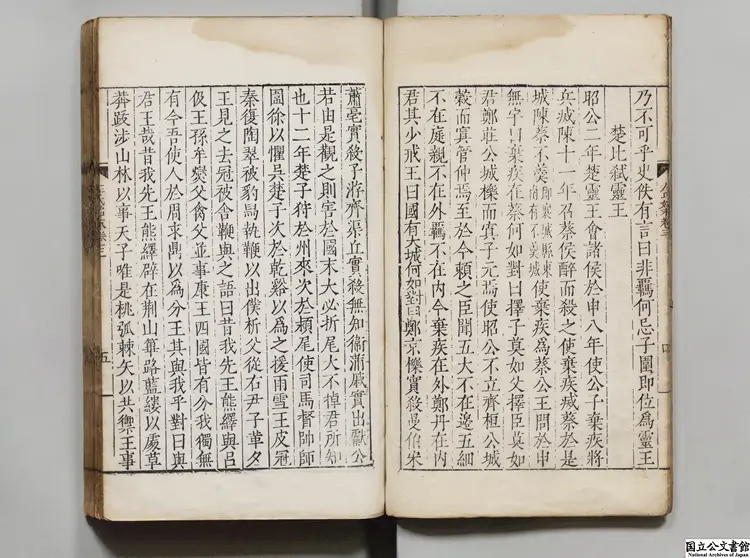 乃不可乎史佚有言曰非羈何忌子圍即位爲靈王
楚比弒靈王
昭公二年楚靈王會諸侯於申八年使公子棄疾將
兵滅陳十一年召蔡侯醉而殺之使棄疾滅蔡於是
城陳蔡不羹使棄疾爲蔡公王問於申
無宇曰棄疾在蔡何如對曰擇子莫如父擇臣莫如
君鄭莊公城櫟而寘子元焉使昭公不立齊桓公城
穀而寘管仲焉至於今賴之臣聞五大不在邊五細
不在庭親不在外羈不在內今棄疾在外鄭丹在內
君其少戒王曰國有大城何如對曰鄭京櫟實殺曼伯宋
四
蕭亳實殺子游齊渠丘實殺無知衞蒲戚實出獻公
若由是觀之則害於國末大必折尾大不掉君所知
也十二年楚子狩於州來次於潁尾使司馬督帥師
圍徐以懼吳楚子次於乾谿以爲之援雨雪王皮冠
秦復陶翠被豹舄執鞭以出僕析父從右尹子革夕
王見之去冠被舍鞭與之語曰昔我先王熊繹與呂
伋王孫牟燮父禽父並事康王四國皆有分我獨無
有今吾使人於周求鼎以爲分王其與我乎對曰與
君王哉昔我先王熊繹辟在荆山篳路藍縷以處草
莽跋涉山林以事天子唯是桃弧棘矢以共禦王事
五
国立公文書館
National Archives of Japan